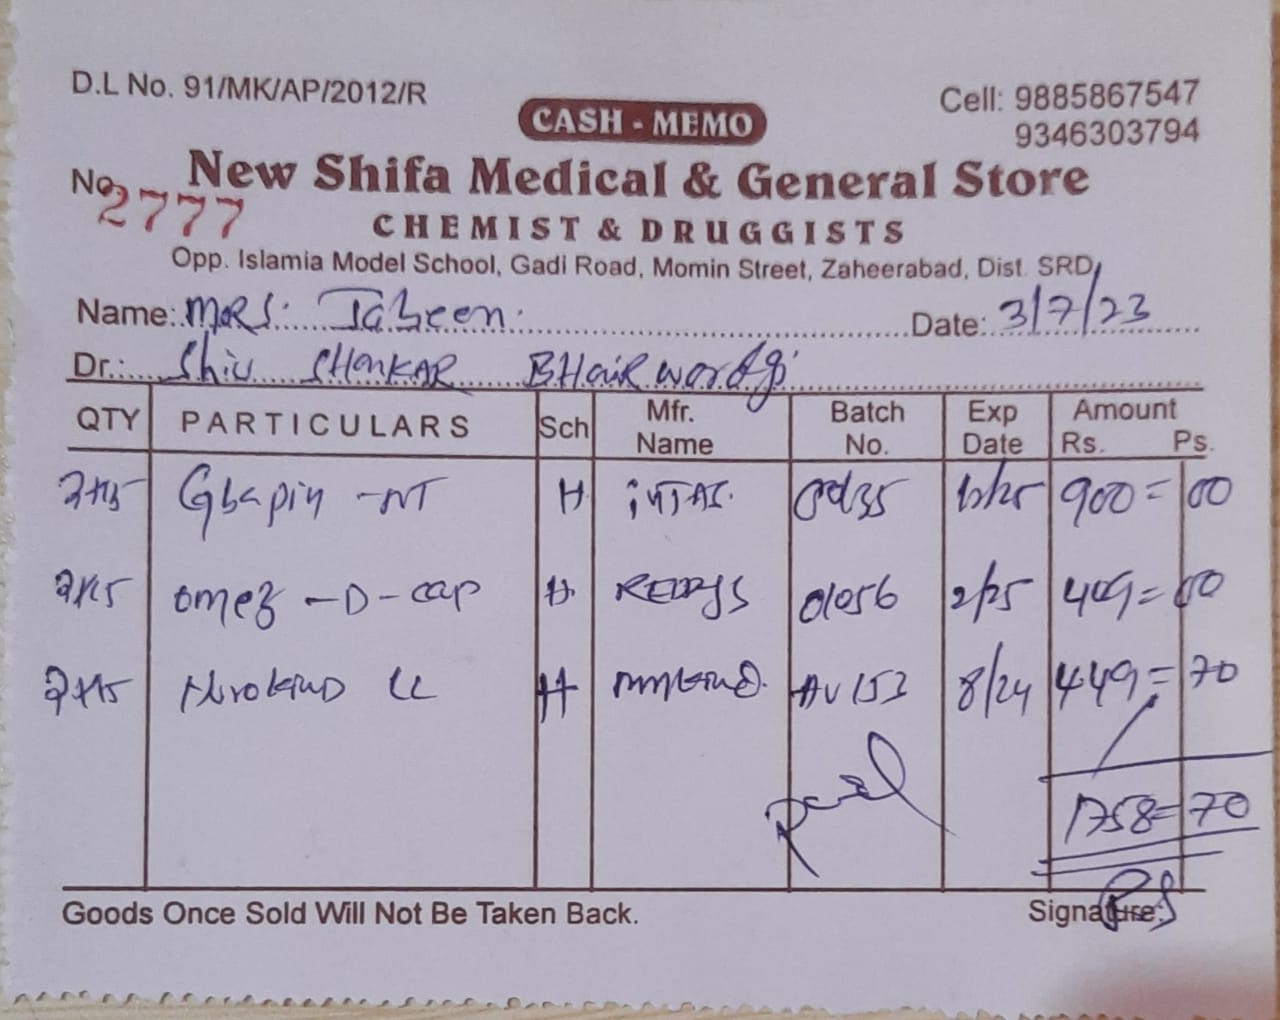 D.L No. 91/MK/AP/2012/R
Cell: 9885867547
9346303794
CASH - MEMO
No. 2777
New Shifa Medical & General Store
CHEMIST & DRUGGISTS
Opp. Islamia Model School, Gadi Road, Momin Street, Zaheerabad, Dist. SRD,
Name: MRS. Date: 3/7/23
Dr.: Shiv SHANKAR
QTY PARTICULARS Sch Mfr. Name Batch No. Exp Date Amount Rs. Ps.
Gbapin -NT H INTAS. 900=00
2x15 omez -D- cap H REDDYS 01056 2/25 409=00
2x15 LC H AV153 8/24 449=70
Paid
1758=70
Goods Once Sold Will Not Be Taken Back.
Signature: